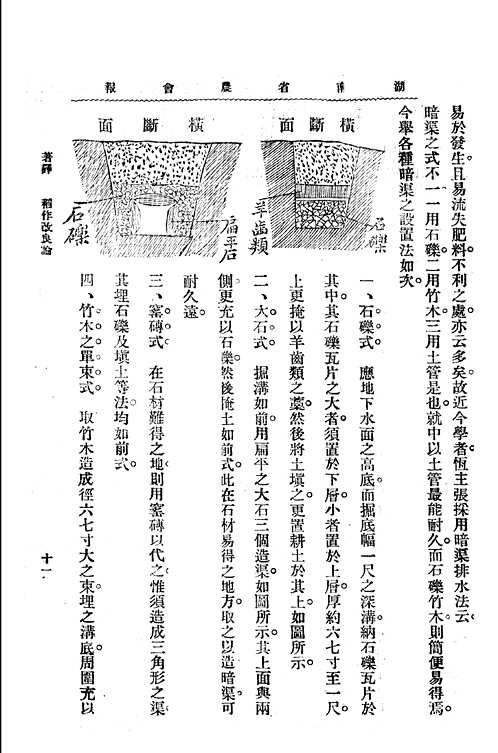 湖南省農會報
易於發生。且易流失肥料。不利之處。亦云多矣。故近今學者。恆主張採用暗渠排水法云。
暗渠之式不一。一用石礫。二用竹木。三用土管是也。就中以土管最能耐久。而石礫竹木。則簡便易得焉。
今舉各種暗渠之設置法如次。
橫斷面
石礫
羊齒類
橫斷面
扁平石
石礫
一、石礫式　應地下水面之高底。而掘底幅一尺之深溝。納石礫瓦片於
其中。其石礫瓦片之大者。須置於下層。小者置於上層。厚約六七寸至一尺。
上更掩以羊齒類之藁。然後將土塡之。更置耕土於其上。如圖所示。
二、大石式　掘溝如前。用扁平之大石三個造渠。如圖所示。其上面與兩
側。更充以石礫。然後掩土如前式。此在石材易得之地方。取之以造暗渠。可
耐久遠。
三、窰磚式　在石材難得之地。則用窰磚以代之。惟須造成三角形之渠。
其埋石礫及塡土等法。均如前式。
四、竹木之單束式　取竹木造成徑六七寸大之束。埋之溝底。周圍充以
著譯　稻作改良論
十一